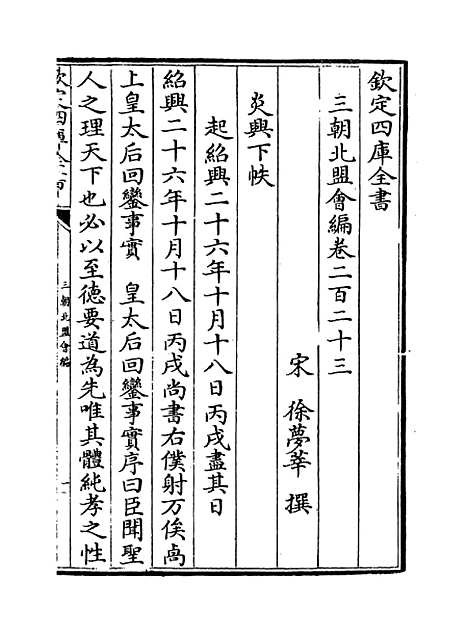 欽定四庫全書
三朝北盟會編卷二百二十三
宋 徐夢莘 撰
炎興下帙
起紹興二十六年十月十八日丙戌盡其日
紹興二十六年十月十八日丙戌尚書右僕射万俟卨
上皇太后回鑾事實 皇太后回鑾事實序曰臣聞聖
人之理天下也必以至德要道為先唯其體純孝之性
欽定四庫全書
三朝北盟會編
一